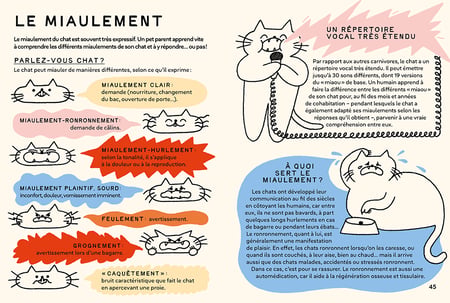 LE MIAULEMENT
Le miaulement du chat est souvent très expressif. Un pet parent apprend vite
à comprendre les différents miaulements de son chat et à y répondre... ou pas!
PARLEZ-VOUS CHAT?
Le chat peut miauler de manières différentes, selon ce qu'il exprime :
MIAULEMENT CLAIR :
demande (nourriture, changement
du bac, ouverture de porte...).
MIAULEMENT-RONRONNEMENT :
demande de câlins.
MIAULEMENT-HURLEMENT
selon la tonalité, il s'applique
à la douleur ou à la reproduction.
MIAULEMENT PLAINTIF, SOURD :
inconfort, douleur, vomissement imminent.
FEULEMENT : avertissement.
GROGNEMENT :
avertissement lors d'une bagarre.
« CAQUÈTEMENT » :
bruit caractéristique que fait le chat
en apercevant une proie.
UN RÉPERTOIRE
VOCAL TRÈS ÉTENDU
Par rapport aux autres carnivores, le chat a un
répertoire vocal très étendu. Il peut émettre
jusqu'à 30 sons différents, dont 19 versions
du « miaou » de base. Un humain apprend à
faire la différence entre les différents « miaou »
de son chat pour, au fil des mois et années
de cohabitation – pendant lesquels le chat a
également adapté ses miaulements selon les
réponses qu'il obtient –, parvenir à une vraie
compréhension entre eux.
À QUOI
SERT LE
MIAULEMENT ?
Les chats ont développé leur
communication au fil des siècles
en côtoyant les humains, car entre
eux, ils ne sont pas bavards, à part
quelques longs hurlements en cas
de bagarre ou pendant leurs ébats...
Le ronronnement, quant à lui, est
généralement une manifestation
de plaisir. En effet, les chats ronronnent lorsqu'on les caresse, ou
quand ils sont couchés, à leur aise, bien au chaud... mais il arrive
aussi que des chats malades, accidentés ou stressés, ronronnent.
Dans ce cas, c'est pour se rassurer. Le ronronnement est aussi une
automédication, car il aide à la régénération osseuse et tissulaire.
45